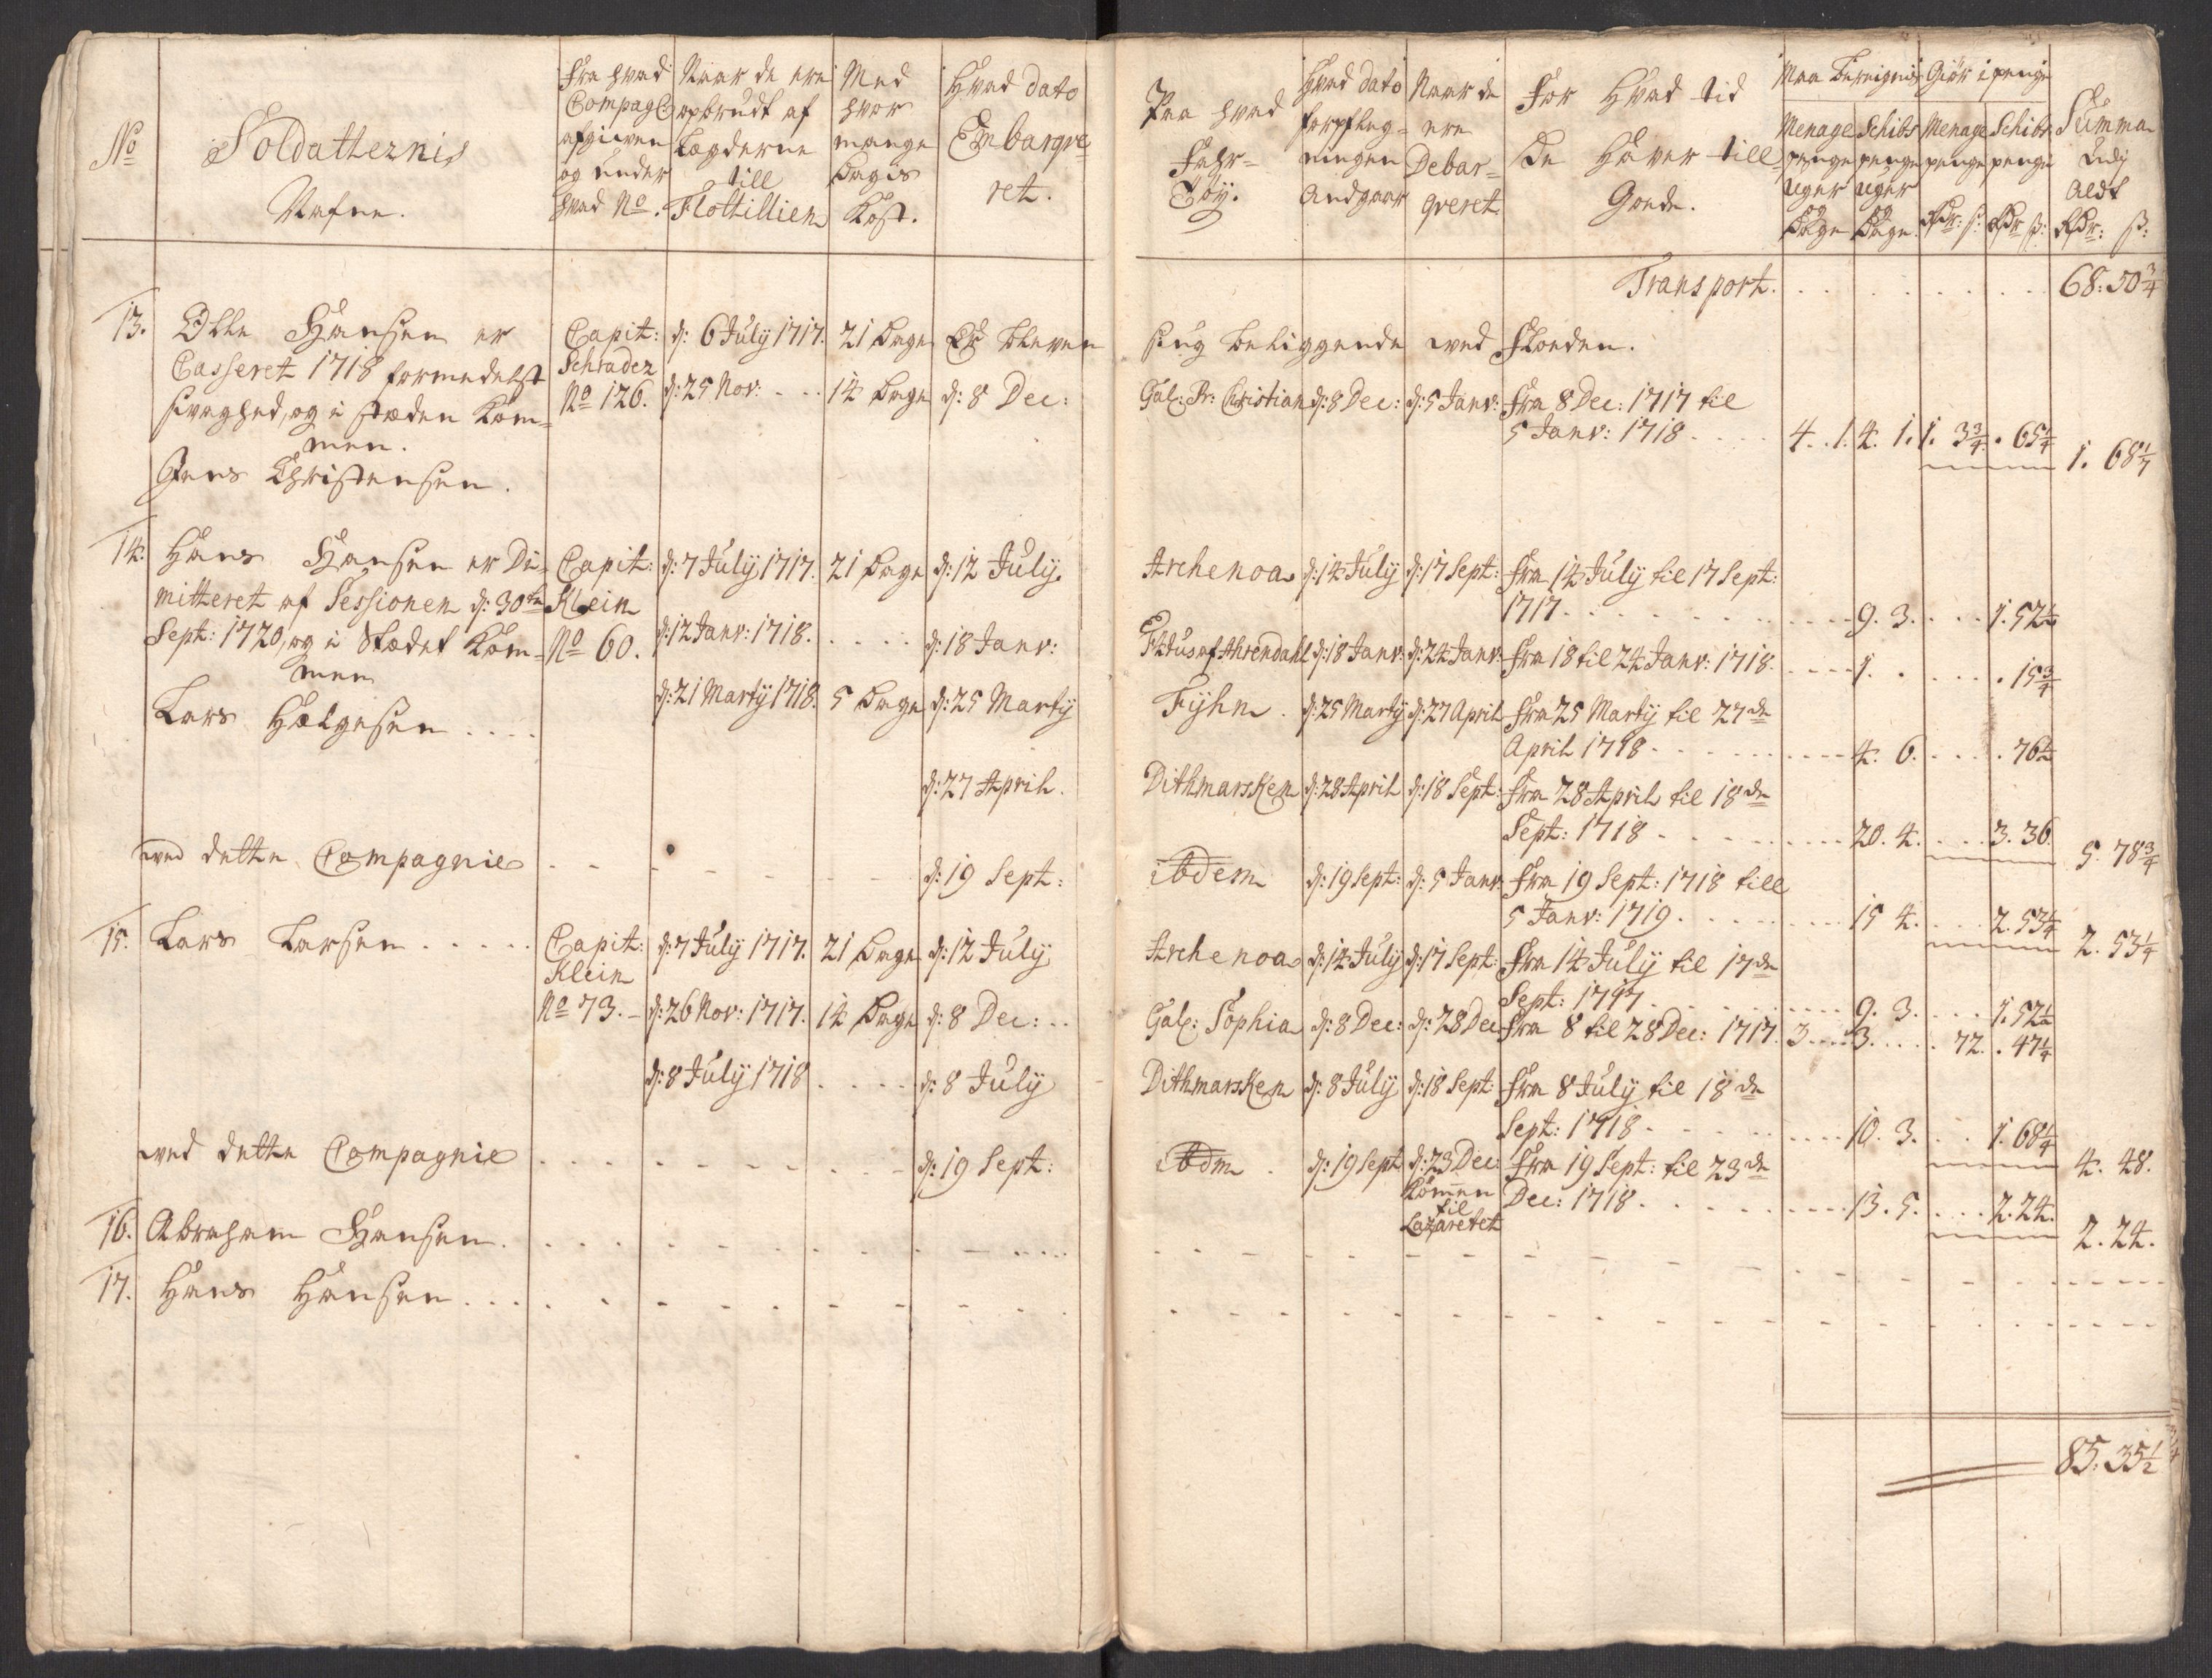 No
Soldatternis
Nafne.
Fra hvad
Compag
afgieven
og under
hvad No.
Naar de ere
opbrudt af
Lægderne
till
Flottillien
Med
hvor
mange
Dagis
Kost.
Hvad dato
Embarqve
ret.
13. Olle Hansen er
Casseret 1718 formedelst
svaghed, og i stæden Kom=
men.
Jens Christensen.
Capit:
Schrader
No 126.
d: 6 July 1717. 21 Dage Er bleven
d: 25 Nov: . . . 14 Dage d: 8 Dec:
14. Hans Hansen er Di=
mitteret af Sessionen d: 30te
Sept: 1720, og i Stædet Kom=
men
Lars Helgesen . . . .
Capit:
Klein
No 60.
d: 7 July 1717. 21 Dage d: 12 July.
d: 12 Janv: 1718. . . . . . d: 18 Janv:
d: 21 Marty 1718. 5 Dage d: 25 Marty
d: 27 April.
wed dette Compagnie - - - - - - d: 19 Sept:
15. Lars Larsen . . . . .
Capit:
Klein
No 73. -
d: 7 July 1717. 21 Dage d: 12 July
d: 26 Nov: 1717. 14 Dage d: 8 Dec: . .
d: 8 July 1718 . . . . . d: 8 July
wed dette Compagnie . . . . . . d: 19 Sept:
16. Abraham Hansen. . . . .
17. Hans Hansen . . . . .
Paa hvad
Fahr=
Töy.
Hvad dato
forpfleg=
ningen
Andgaar
Naar de
ere
Debar=
qveret
For Hvad tid
De Haver till=
Gode.
Menage
penge
uger
og
Dage
Schibs
penge
uger
og
Dage.
Giör i penge
Menage
penge
Rdr: ß:
Schibs
penge
Rdr ß:
Summa
Udj
Aldt
Rdr: ß:
Transport. . . . . . 68: 50 3/4
siug beliggende wed Floeden.
Gal: Pr: Christian d: 8 Dec: d: 5 Janv: fra 8 Dec: 1717 til
5 Janv: 1718 . . . . 4. 1. 4. 1. 1. 3 3/4 . 65 1/4
1. 68 1/7
Archenoa d: 14 July d: 17 Sept: fra 14 July til 17 Sept:
1717. . . . . . 9. 3. . . . 1. 52 1/2
Huus af Ahrendahl d: 18 Janv: d: 24 Janv: fra 18 til 24 Janv: 1718. . . . 1. . . . . 15 3/4
Fyhn . d: 25 Marty d: 27 April fra 25 Marty til 27de
April 1718 . . . . . 4. 6. . . . . 76 1/2
Dithmarsken d: 28 April d: 18 Sept: fra 28 April til 18de
Sept: 1718 . . . . . 20. 4. . . . 3. 36.
5. 78 3/4
Idem d: 19 Sept: d: 5 Janv: fra 19 Sept: 1718 till
5 Janv: 1719. . . . . 15 4. . . . 2. 53 1/4
2. 53 1/4
Archenoa d: 14 July d: 17 Sept: fra 14 July til 17de
Sept: 1717. . . . . 9. 3. . . . 1. 52 1/2
Gal: Sophia d: 8 Dec: d: 28 Dec fra 8 til 28 Dec: 1717. 3. . . . 3. . . . 72. . 47 1/4
Dithmarsken d: 8 July d: 18 Sept: fra 8 July til 18de
Sept: 1718 . . . . . 10. 3. . . 1. 68 1/4
4. 48.
Idm . d: 19 Sept d: 23 Dec: fra 19 Sept: til 23de
Kommen
til
Lazaretet
Dec: 1718. . . . . 13. 5. . . . 2. 24.
2. 24.
85: 35 1/2